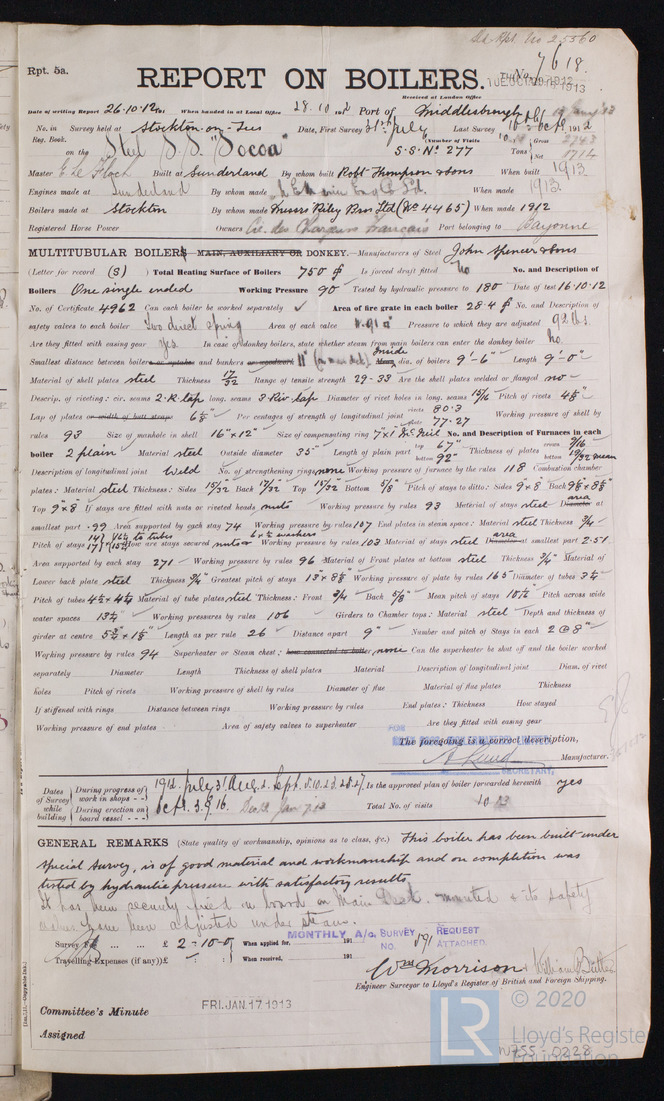 Rpt. 5a.
7618.
REPORT ON BOILERS.
Received at London Office
TUE.OCT.29.1912
Date of writing Report 26.10.12 191 When handed in at Local Office 28.10.1912 Port of Middlesbrough
No. in Survey held at Stockton-on-Tees Date, First Survey 31st July Last Survey 16th Octr. 1912
Reg. Book. (Number of Visits
on the Steel S.S. "Socoa" S.S. No 277 Gross 2743
Tons Net 1714
Master E Le Floch Built at Sunderland By whom built Robt Thompson & Sons When built 1913
Engines made at Sunderland By whom made N.E. Marine Eng Co Ltd. When made 1913
Boilers made at Stockton By whom made Messrs Riley Bros Ltd (No 4465) When made 1912
Registered Horse Power Owners Cie. des Chargeurs Français Port belonging to Bayonne
MULTITUBULAR BOILERS MAIN, AUXILIARY OR DONKEY.—Manufacturers of Steel John Spencer & Sons
(Letter for record (S) ) Total Heating Surface of Boilers 750 Is forced draft fitted No No. and Description of
Boilers One single ended Working Pressure 90 Tested by hydraulic pressure to 180 Date of test 16.10.12
No. of Certificate 4962 Can each boiler be worked separately ✓ Area of fire grate in each boiler 28.4 No. and Description of
safety valves to each boiler Two direct spring Area of each valve Pressure to which they are adjusted 92 lbs.
Are they fitted with easing gear Yes In case of donkey boilers, state whether steam from main boilers can enter the donkey boiler No.
Smallest distance between boilers or uptakes and bunkers or woodwork 11" Inside Mean dia. of boilers 9'-6" Length 9'-0"
Material of shell plates steel Thickness 17/32 Range of tensile strength 29-33 Are the shell plates welded or flanged no
Descrip. of riveting: cir. seams 2.R.lap long. seams 3.Riv.lap Diameter of rivet holes in long. seams 15/16 Pitch of rivets 4 1/8"
Lap of plates or width of butt straps 6 1/2" Per centages of strength of longitudinal joint rivets 80.3 plate 77.27 Working pressure of shell by
rules 93 Size of manhole in shell 16"×12" Size of compensating ring 7"×1" McNeil No. and Description of Furnaces in each
boiler 2 plain Material steel Outside diameter 35" Length of plain part top 67" bottom 92" Thickness of plates crown 9/16 bottom 19/32 mean
Description of longitudinal joint Weld No. of strengthening rings none Working pressure of furnace by the rules 118 Combustion chamber
plates: Material steel Thickness: Sides 15/32 Back 17/32 Top 15/32 Bottom 5/8" Pitch of stays to ditto: Sides 9×8 Back 9 1/8×8 3/8"
Top 9"×8 If stays are fitted with nuts or riveted heads nuts Working pressure by rules 93 Material of stays steel area Diameter at
smallest part .99 Area supported by each stay 74 Working pressure by rules 107 End plates in steam space: Material steel Thickness 3/4
Pitch of stays How are stays secured nuts & washers Working pressure by rules 103 Material of stays steel area Diameter at smallest part 2.51
Area supported by each stay 271 Working pressure by rules 96 Material of Front plates at bottom steel Thickness 3/4" Material of
Lower back plate steel Thickness 3/4" Greatest pitch of stays 13×8 3/8" Working pressure of plate by rules 165 Diameter of tubes 3 1/4"
Pitch of tubes 4 1/2×4 1/4 Material of tube plates steel Thickness: Front 3/4" Back 5/8" Mean pitch of stays 10 1/2" Pitch across wide
water spaces 13 1/4" Working pressures by rules 106 Girders to Chamber tops: Material steel Depth and thickness of
girder at centre 5 3/4"×1 1/2" Length as per rule 26 Distance apart 9" Number and pitch of Stays in each 2 @ 8"
Working pressure by rules 94 Superheater or Steam chest: how connected to boiler none Can the superheater be shut off and the boiler worked
separately Diameter Length Thickness of shell plates Material Description of longitudinal joint Diam. of rivet
holes Pitch of rivets Working pressure of shell by rules Diameter of flue Material of flue plates Thickness
If stiffened with rings Distance between rings Working pressure by rules End plates: Thickness How stayed
Working pressure of end plates Area of safety valves to superheater Are they fitted with easing gear
FOR
The foregoing is a correct description,
Manufacturer.
SECRETARY.
Dates of Survey while building
During progress of work in shops - - 1912. July 31. Aug. 2. Sept. 5.10.23.25.27 Is the approved plan of boiler forwarded herewith yes
During erection on board vessel - - - Octr. 3.9.16. Total No. of visits 10
GENERAL REMARKS (State quality of workmanship, opinions as to class, &c.) This boiler has been built under
special survey, is of good material and workmanship and on completion was
tested by hydraulic pressure with satisfactory results.
It has been securely fixed on board on Main Deck. mounted & its safety
valves have been adjusted under steam.
MONTHLY A/c. SURVEY REQUEST
NO. 591 ATTACHED.
Survey Fee ... ... £ 2-10-0 When applied for, 191
Travelling Expenses (if any) £ : : When received, 191
Wm Morrison & William Butler
Engineer Surveyor to Lloyd's Register of British and Foreign Shipping.
Committee's Minute FRI. JAN. 17 1913
Assigned
© 2020
LR
Lloyd's Register
Foundation
W755-0228